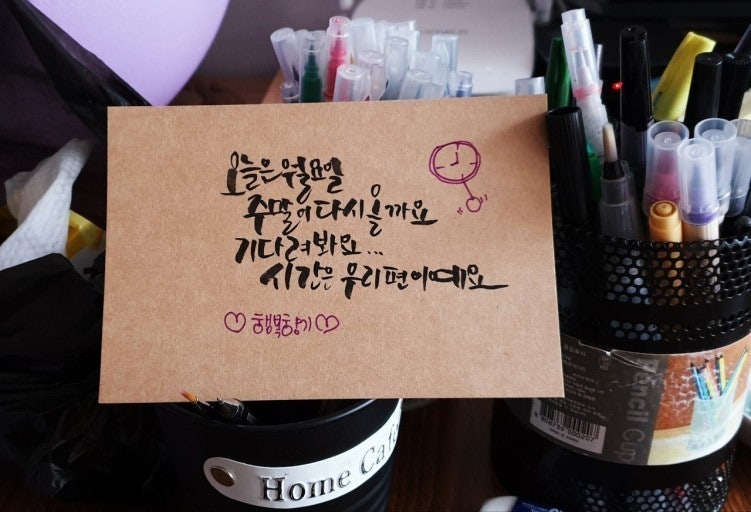 오늘은 월요일
주말이 다시 올까요
기다려봐요...
시간은 우리 편이예요
♡행복향기♡
Home Cafe
Pencil Cup